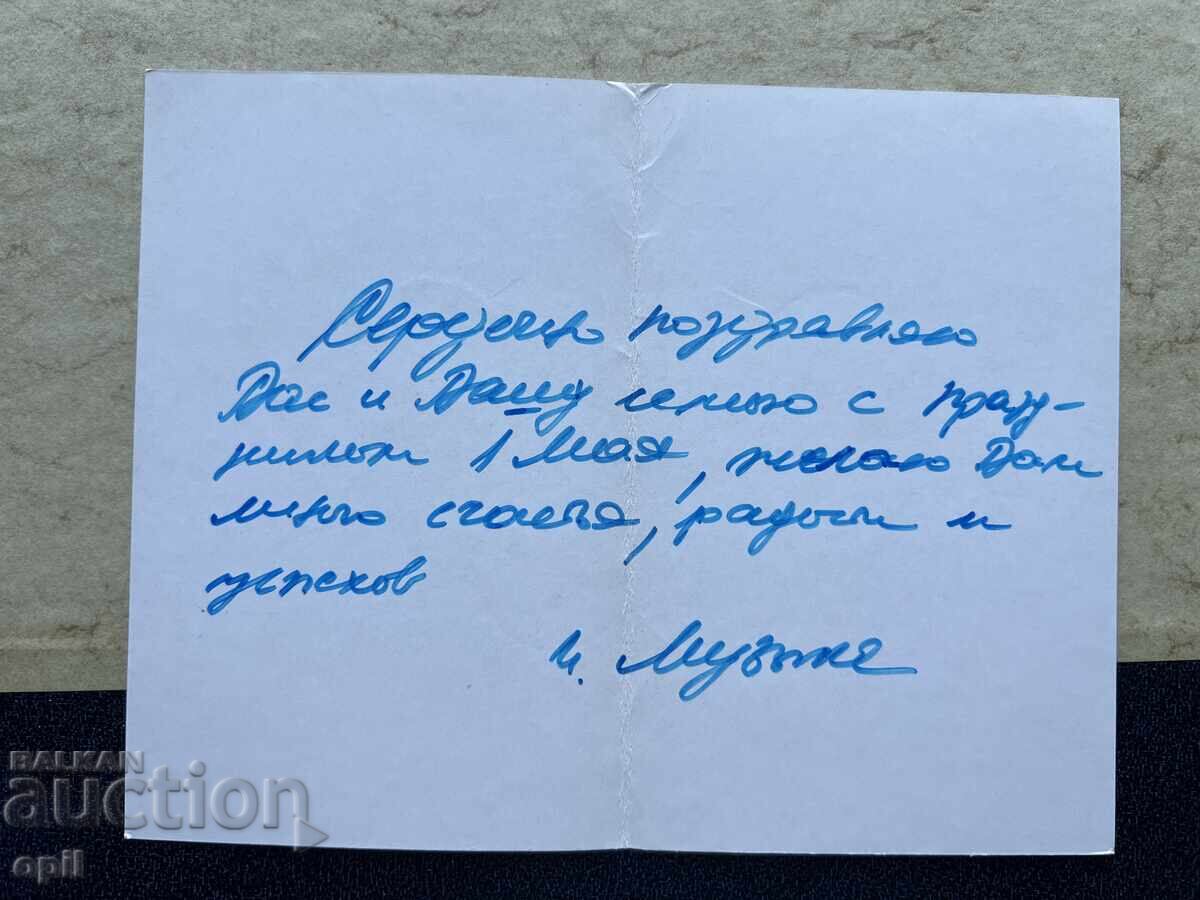 Сердечно поздравляю
Вас и Вашу семью с празд-
ником 1 Мая, желаю Вам
много счастья, радости и
успехов
И. Музыка
BALKAN
auction
opil